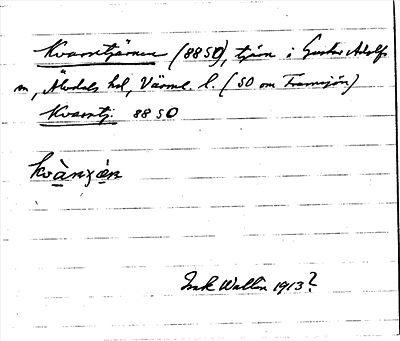 Kvarntjärnen (88 SO), tjärn i Gustav Adolfs
sn, Älvdals hd, Värml. l. ( SO om Transjön)
Kvarntj. 88 SO
Isak Wallin 1913?